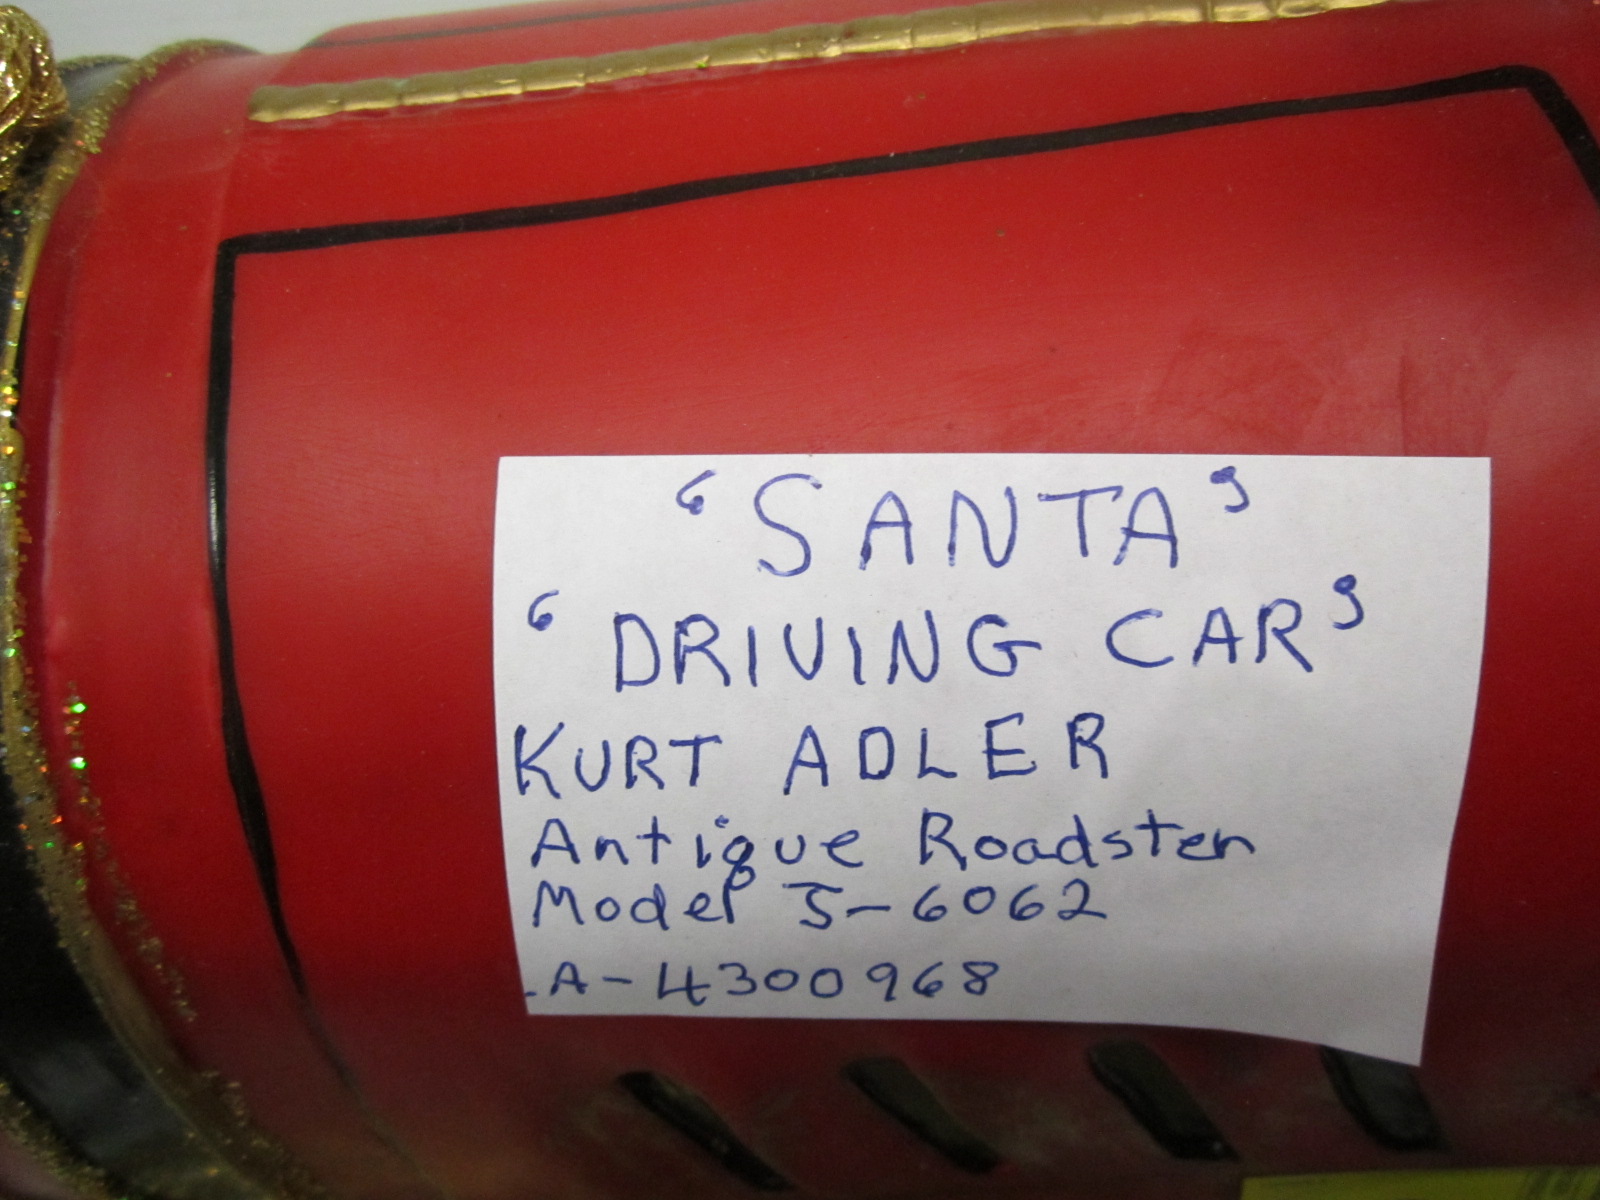 "SANTA"
"DRIVING CAR"
KURT ADLER
Antique Roadster
Model J-6062
.A-4300968